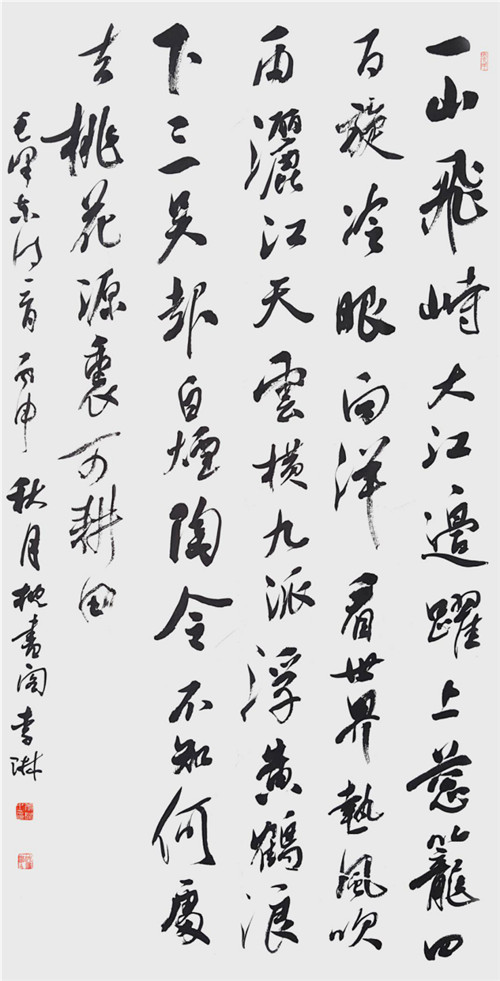 一山飛峙大江邊躍上蔥籠四
百旋冷眼向洋看世界熱風吹
雨灑江天雲橫九派浮黃鶴浪
下三吳起白煙陶令不知何處
去桃花源裏可耕田
毛澤東詩一首丙申秋月枕書閣李琳